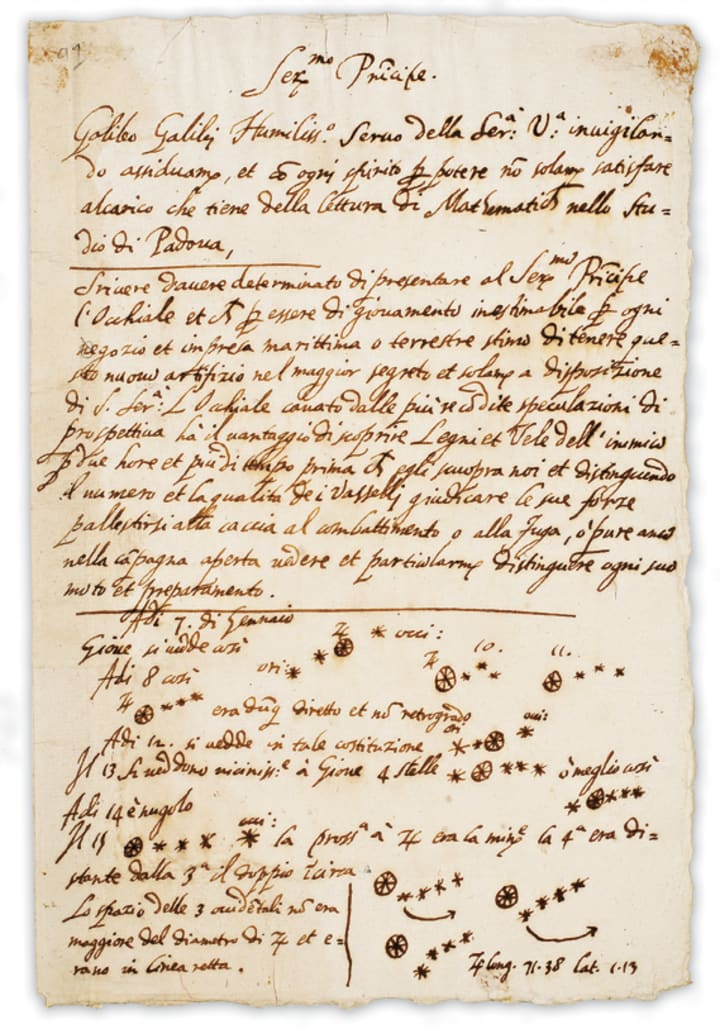 Ser.mo Prĩcipe.
Galileo Galilej Humiliss.o Servo della Ser:a V:a invigilan=
do assiduam.e, et cõ ogni spirito p potere nõ solam.e satisfare
alcarico che tiene della lettura di Mathematich nello Stu=
dio di Padova,
Scrivere davere determinato di presentare al Ser.mo Prĩcipe
l'Occhiale et ch p essere di giovamento inestimabile p ogni
negozio et impresa marittima o terrestre stimo di tenere que=
sto nuovo artifizio nel maggior segreto et solam.e a disposizione
di S. Ser:a L'Occhiale cavato dalle più recõdite speculazioni di
prospettiva hà il vantaggio di scoprire Legni et Vele dell'inimico
p due hore et più di tempo prima ch egli scuopra noi et distinguendo
il numero et la qualita dei Vasselli giudicare le sue forze
pallestirsi alla caccia al combattimento o alla fuga, ò pure anco
nella cãpagna aperta vedere et particularm.e distinguere ogni suo
moto et preparamento.
Adi 7. di Gennaio
Giove si vedde così ♃ occi:
Adi 8 così ori: ♃ 10. 11.
♃ era dũq diretto et nõ retrogrado
Adi 12. si vedde in tale costituzione ori occi:
Il 13 si veddono viciniss:e à Giove 4 stelle ò meglio così
Adi 14 è nugolo
Il 15 occi: la pross.a à ♃ era la min.e la 4.a era di=
stante dalla 3.a il doppio ĩcirca
Lo spazio delle 3 occidẽtali nõ era
maggiore del diametro di ♃ et e=
rano in linea retta.
♃ long. 71.38 lat. 1.13